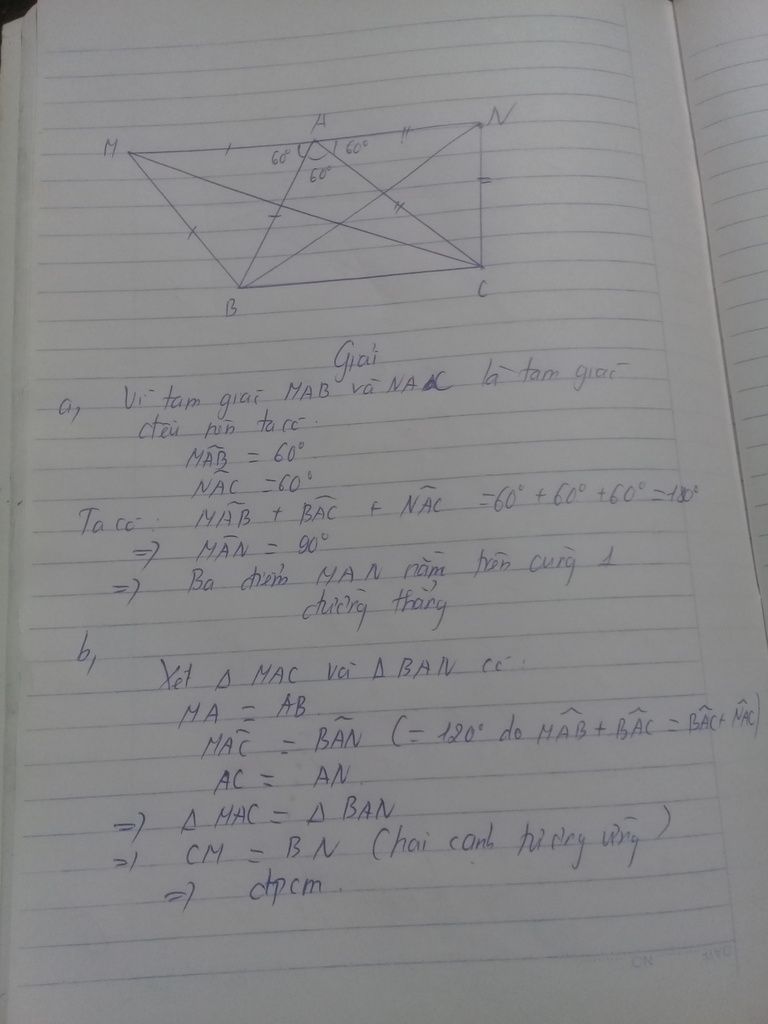 M
A
N
60°
60°
60°
B
C
Giải
a, Vì tam giác MAB và NAC là tam giác
đều nên ta có:
MÂB = 60°
NÂC = 60°
Ta có: MÂB + BÂC + NÂC = 60° + 60° + 60° = 180°
=> MÂN = 90°
=> Ba điểm MAN nằm trên cùng 1
đường thẳng
b,
Xét Δ MAC và Δ BAN có:
MA = AB
MÂC = BÂN (= 120° do MÂB + BÂC = BÂC + NÂC)
AC = AN
=> Δ MAC = Δ BAN
=> CM = BN (hai cạnh tương ứng)
=> đpcm.